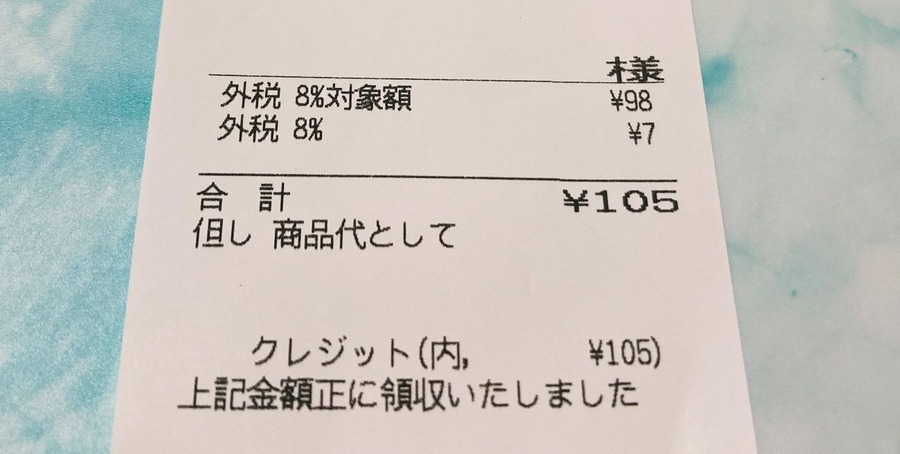 様
外税 8%対象額 ¥98
外税 8% ¥7
合 計 ¥105
但し 商品代として
クレジット(内, ¥105)
上記金額正に領収いたしました